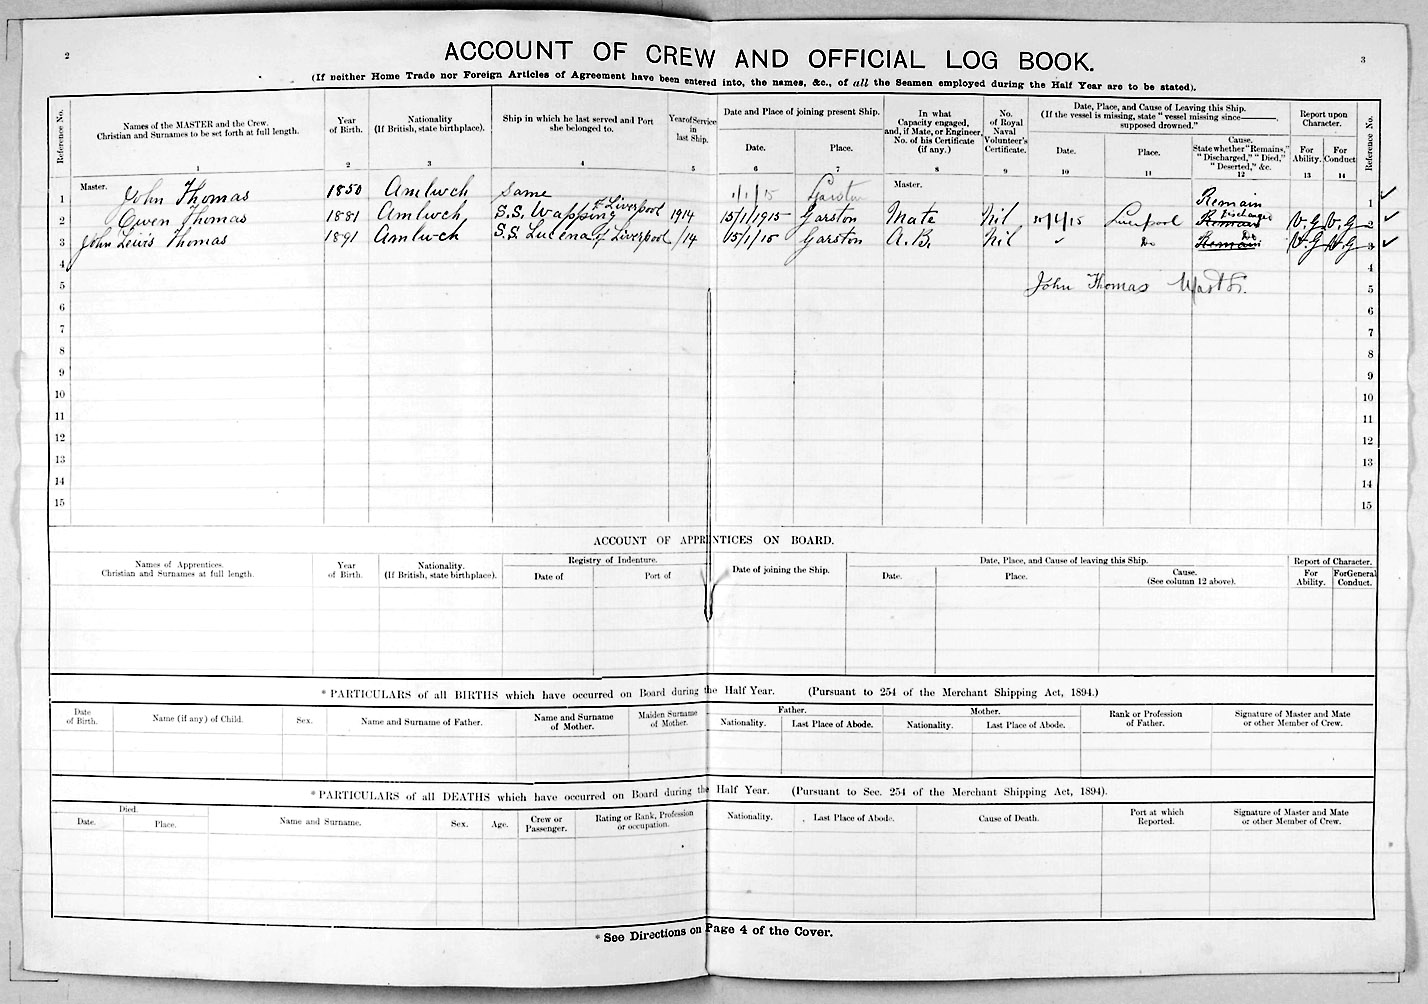 2
3
ACCOUNT OF CREW AND OFFICIAL LOG BOOK.
(If neither Home Trade nor Foreign Articles of Agreement have been entered into, the names, &c., of all the Seamen employed during the Half Year are to be stated).
Reference No.
Names of the MASTER and the Crew.
Christian and Surnames to be set forth at full length.
1
Year
of Birth.
2
Nationality
(If British, state birthplace).
3
Ship in which he last served and Port
she belonged to.
4
Year of Service
in
last Ship.
5
Date and Place of joining present Ship.
Date.
6
Place.
7
In what
Capacity engaged,
and, if Mate, or Engineer,
No. of his Certificate
(if any.)
8
No.
of Royal
Naval
Volunteer's
Certificate.
9
Date, Place, and Cause of Leaving this Ship.
(If the vessel is missing, state "vessel missing since———,
supposed drowned."
Date.
10
Place.
11
Cause.
State whether "Remains,"
"Discharged," "Died,"
"Deserted," &c.
12
Report upon
Character.
For
Ability.
13
For
Conduct
14
Reference No.
1 Master. John Thomas 1850 Amlwch Same 1/1/15 Garston Master. Remain 1 ✓
2 Owen Thomas 1881 Amlwch S.S. Wapping of Liverpool 1914 15/1/1915 Garston Mate Nil Liverpool Remain Discharged V.G V.G 2 ✓
3 John Lewis Thomas 1891 Amlwch S.S. Lucena of Liverpool /14 15/1/15 Garston A.B. Nil " Do Remain Do V.G V.G 3 ✓
4 4
5 John Thomas Master. 5
6 6
7 7
8 8
9 9
10 10
11 11
12 12
13 13
14 14
15 15
ACCOUNT OF APPRENTICES ON BOARD.
Names of Apprentices.
Christian and Surnames at full length.
Year
of Birth.
Nationality.
(If British, state birthplace).
Registry of Indenture.
Date of
Port of
Date of joining the Ship.
Date, Place, and Cause of leaving this Ship.
Date.
Place.
Cause.
(See column 12 above).
Report of Character.
For
Ability.
For General
Conduct.
* PARTICULARS of all BIRTHS which have occurred on Board during the Half Year. (Pursuant to 254 of the Merchant Shipping Act, 1894.)
Date
of Birth.
Name (if any) of Child.
Sex.
Name and Surname of Father.
Name and Surname
of Mother.
Maiden Surname
of Mother.
Father.
Nationality.
Last Place of Abode.
Mother.
Nationality.
Last Place of Abode.
Rank or Profession
of Father.
Signature of Master and Mate
or other Member of Crew.
* PARTICULARS of all DEATHS which have occurred on Board during the Half Year. (Pursuant to Sec. 254 of the Merchant Shipping Act, 1894).
Died.
Date.
Place.
Name and Surname.
Sex.
Age.
Crew or
Passenger.
Rating or Rank, Profession
or occupation.
Nationality.
Last Place of Abode.
Cause of Death.
Port at which
Reported.
Signature of Master and Mate
or other Member of Crew.
* See Directions on Page 4 of the Cover.